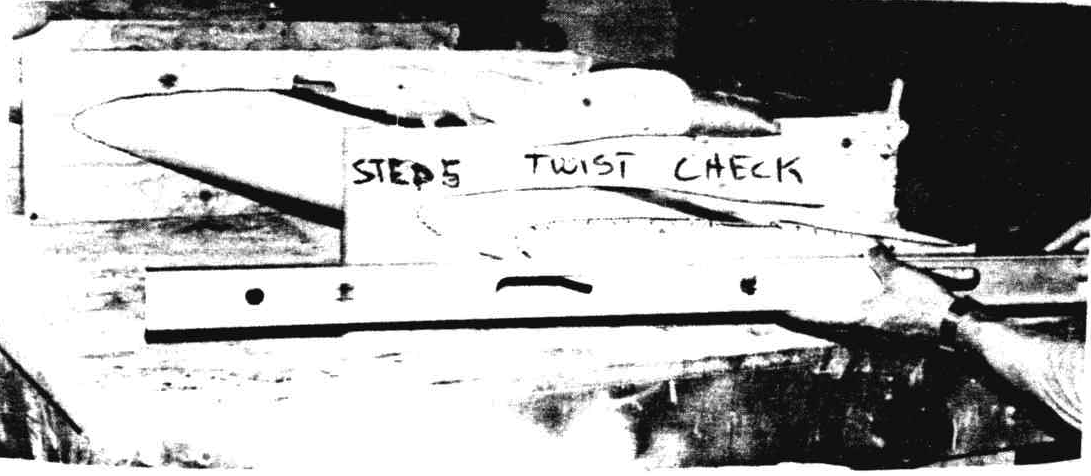 STEP5 TWIST CHECK